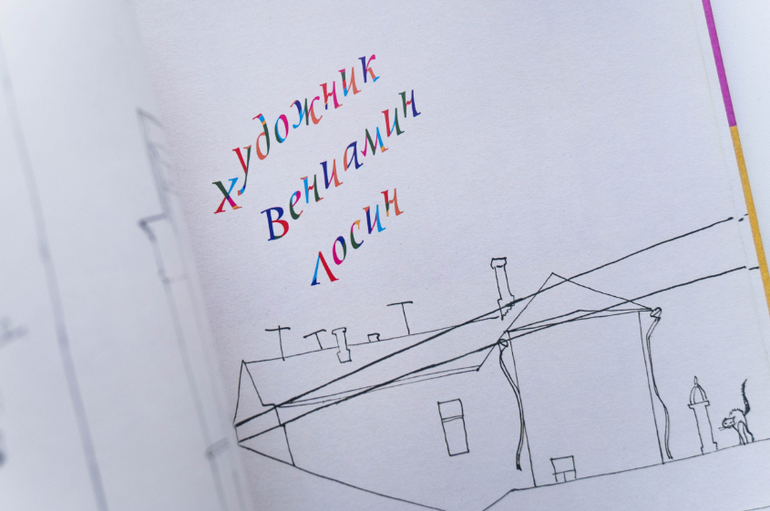 художник
Вениамин
Лосин